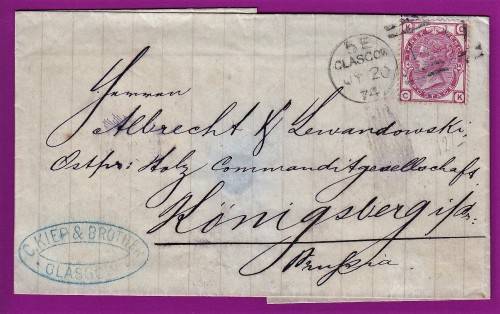 5 E
GLASGOW
JY 20
74
K C
C K
Herren
Albrecht & Lewandowski,
Ostpr: Holz Commanditgesellschaft
Königsberg i/Pr.
Prussia.
C. KIEP & BROTHER
GLASGOW